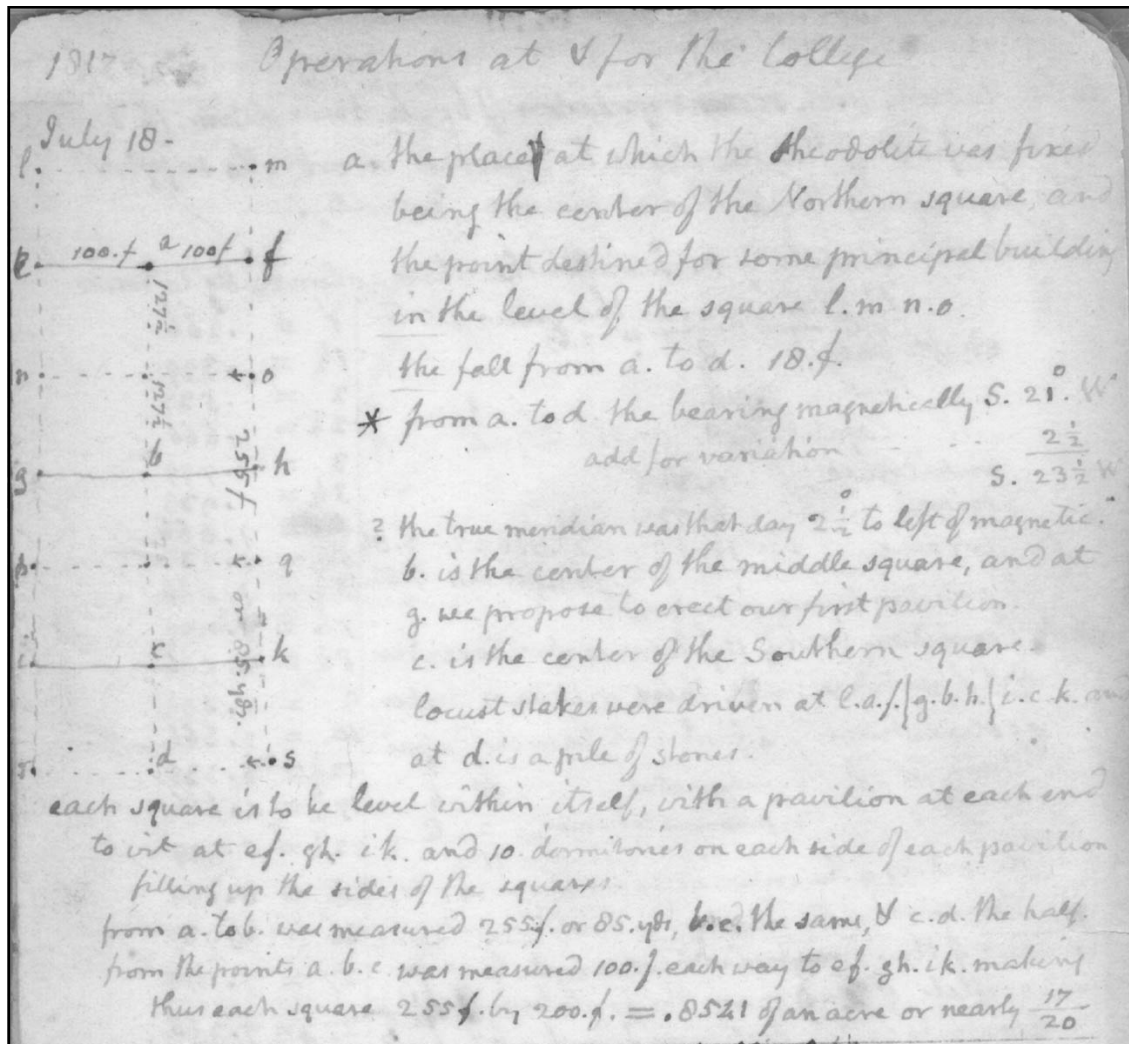 1817 Operations at & for the College
July 18-
l m a. the place at which the theodolite was fixed
being the center of the Northern square, and
e 100.f a 100f f the point destined for some principal building
in the level of the square l.m n.o.
127½
n o the fall from a. to d. 18.f.
127½
* from a. to d. the bearing magnetically S. 21.° W
add for variation 2½
g b h S. 23½ W
255f. or 85.yds.
? the true meridian was that day 2½° to left of magnetic.
p q b. is the center of the middle square, and at
g. we propose to erect our first pavilion.
i c k c. is the center of the Southern square.
locust stakes were driven at l.a.f.{g.b.h.{i.c.k. and
r d s at d. is a pile of stones.
each square is to be level within itself, with a pavilion at each end
to wit at ef. gh. ik. and 10. dormitories on each side of each pavilion
filling up the sides of the squares.
from a. to b. was measured 255f. or 85.yds, b.c. the same, & c.d. the half.
from the points a. b. c. was measured 100.f. each way to ef. gh. ik. making
thus each square 255f. by 200.f. = .8541 of an acre or nearly 17/20